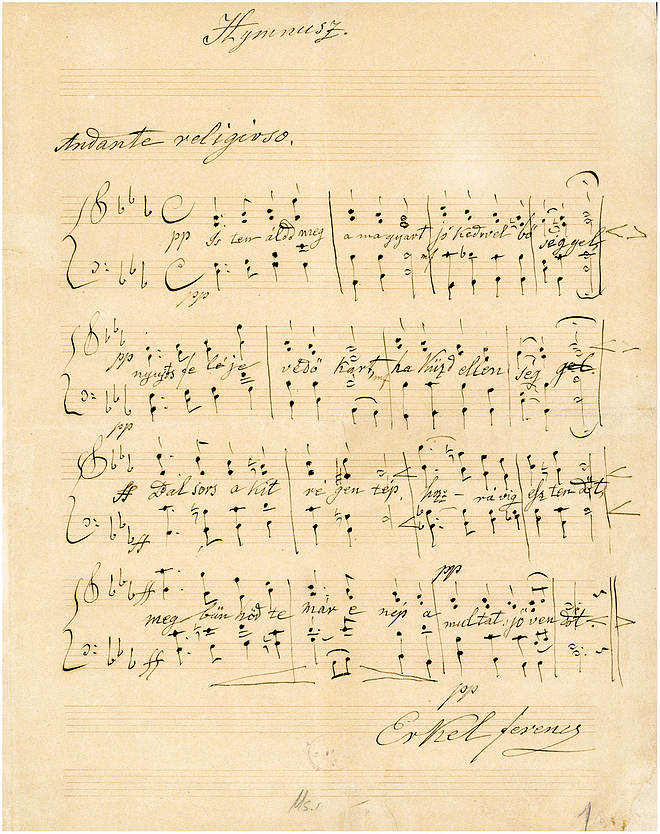 Hymnusz.
Andante religioso.
pp Is ten áldd meg a magyart jó kedvvel bő séggel
mf
pp
pp nyujts fe léje védő kart, ha küzd ellen ség gel
mf
pp
ff Bal sors a kit ré gen tép, hozz – rá víg esz ten dőt,
ff
pp
ff meg bűn hőd te már e nép a multat, jöven dőt
ff
pp
Erkel ferencz
Ms. 1.
1